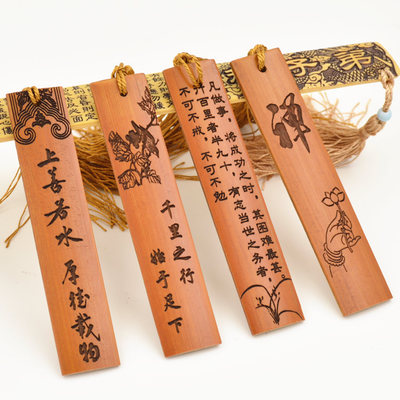 上善若水
厚德載物
千里之行
始于足下
凡做事，将成功之时，其困难最甚。
行百里者半九十，有志当世之务者，
不可不戒，不可不勉
禅
弟子